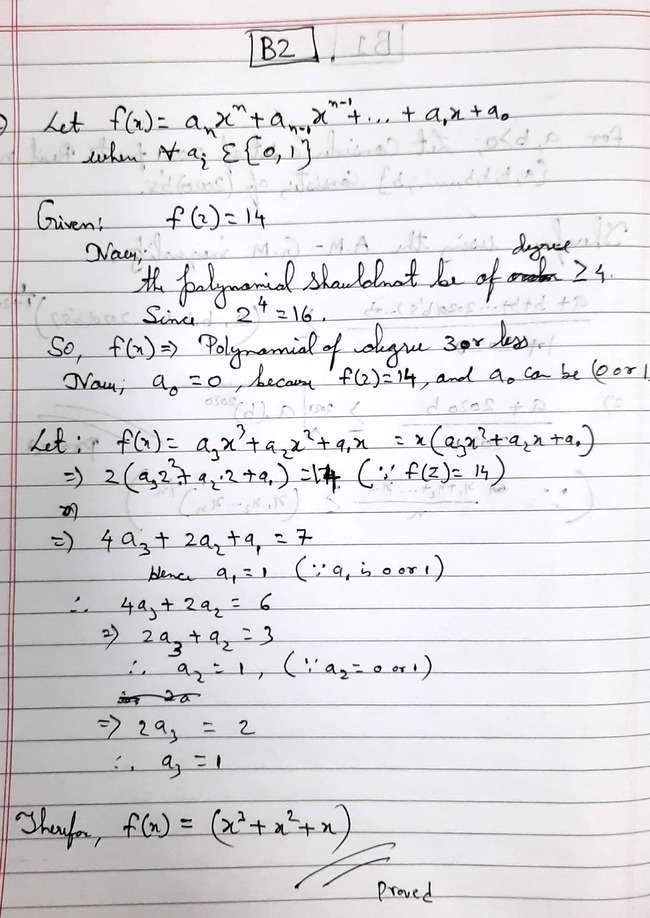 B2
Let f(x) = aₙxⁿ + aₙ₋₁xⁿ⁻¹ + ... + a₁x + a₀
when ∀ aᵢ Σ {0, 1}
Given: f(2) = 14
Now,
degree
the polynomial shouldnot be of ≥ 4.
Since 2⁴ = 16.
So, f(x) ⇒ Polynomial of degree 3 or less.
Now, a₀ = 0, because f(2) = 14, and a₀ can be (0 or 1
Let: f(x) = a₃x³ + a₂x² + a₁x = x(a₃x² + a₂x + a₁)
⇒ 2(a₃2² + a₂·2 + a₁) = 14 (∵ f(2) = 14)
⇒ 4a₃ + 2a₂ + a₁ = 7
Hence a₁ = 1 (∵ a₁ is 0 or 1)
∴ 4a₃ + 2a₂ = 6
⇒ 2a₃ + a₂ = 3
∴ a₂ = 1, (∵ a₂ = 0 or 1)
⇒ 2a₃ = 2
∴ a₃ = 1
Therefor, f(x) = (x³ + x² + x)
Proved